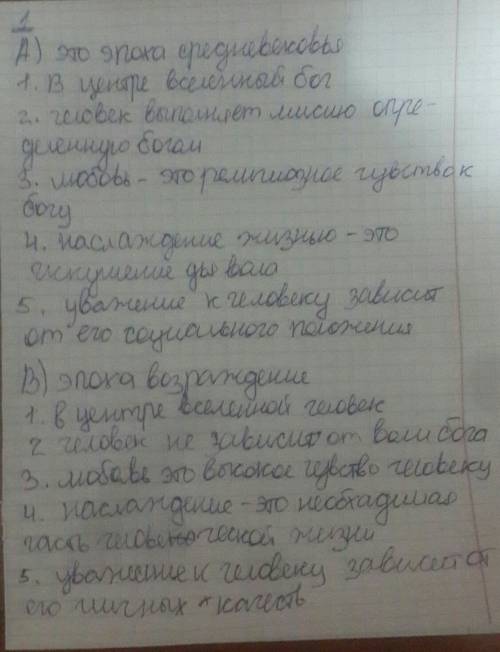 1
А) это эпоха средневековья
1. В центре вселенный бог
2. человек выполняет миссию опре-
деленную богом
3. любовь - это религиозное чувство к
богу
4. наслаждение жизнью - это
искушение дьявола
5. уважение к человеку зависит
от его социального положения
В) эпоха возраждение
1. в центре вселенной человек
2 человек не зависит от воли бога
3. любовь это высокое чувство человеку
4. наслаждение - это необхадимая
часть человеческой жизни
5. уважение к человеку зависит от
его личных качеств